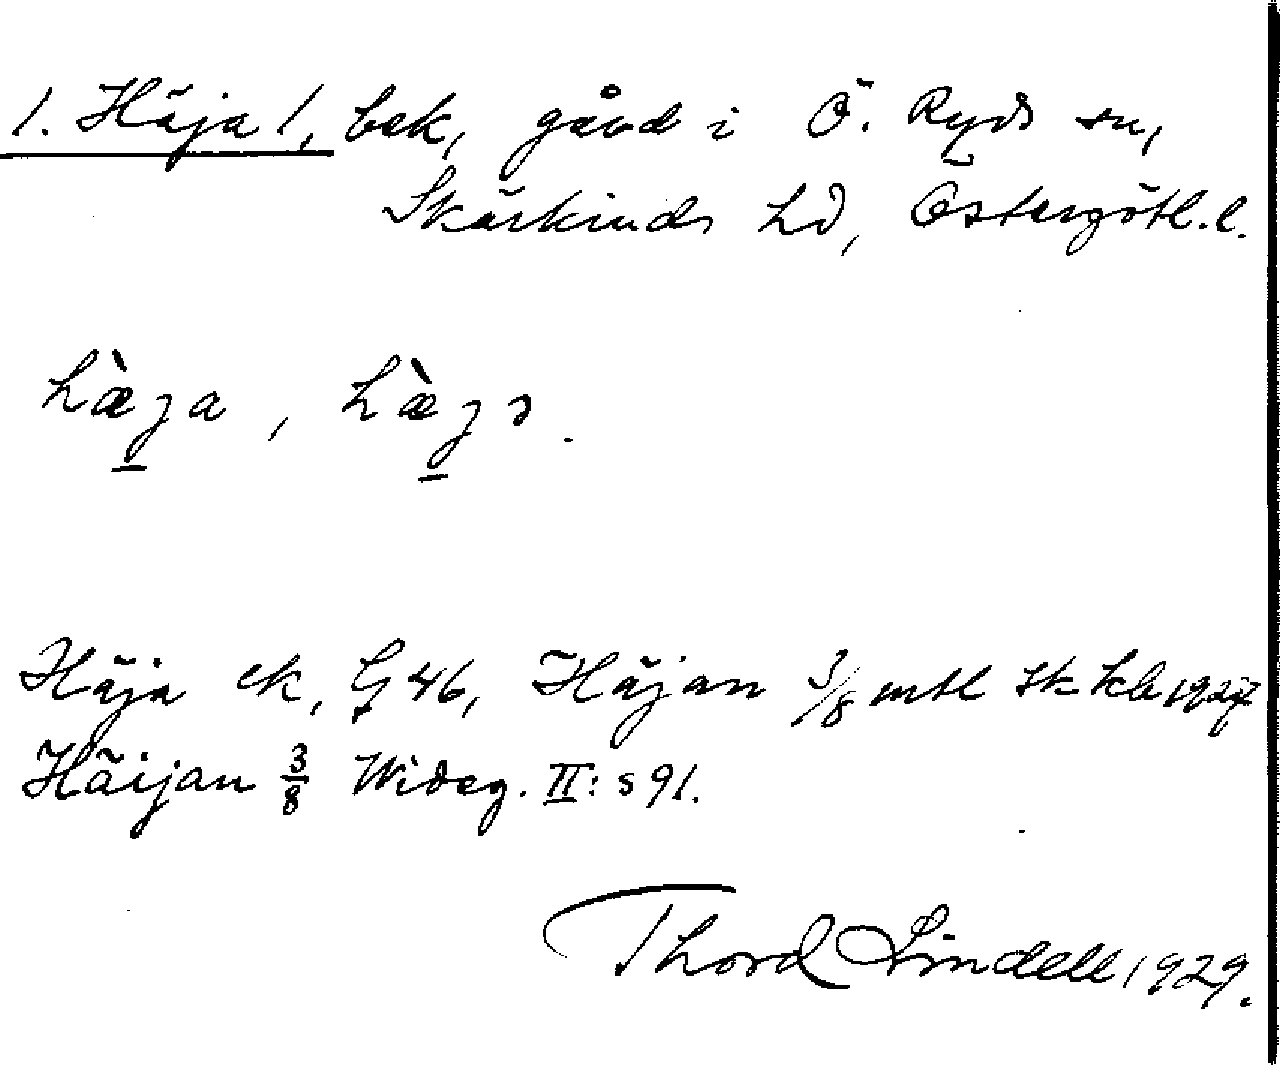 1. Häja l, bek, gård i Ö. Ryds sn,
Skärkinds hd, Östergötl. l.
hæ̀ja, hæ̀jə.
Häja ek, G 46, Häjan 3/8 mtl sk kb 1927
Häijan 3/8 Wideg. II: s 91.
Thord Lindell 1929.